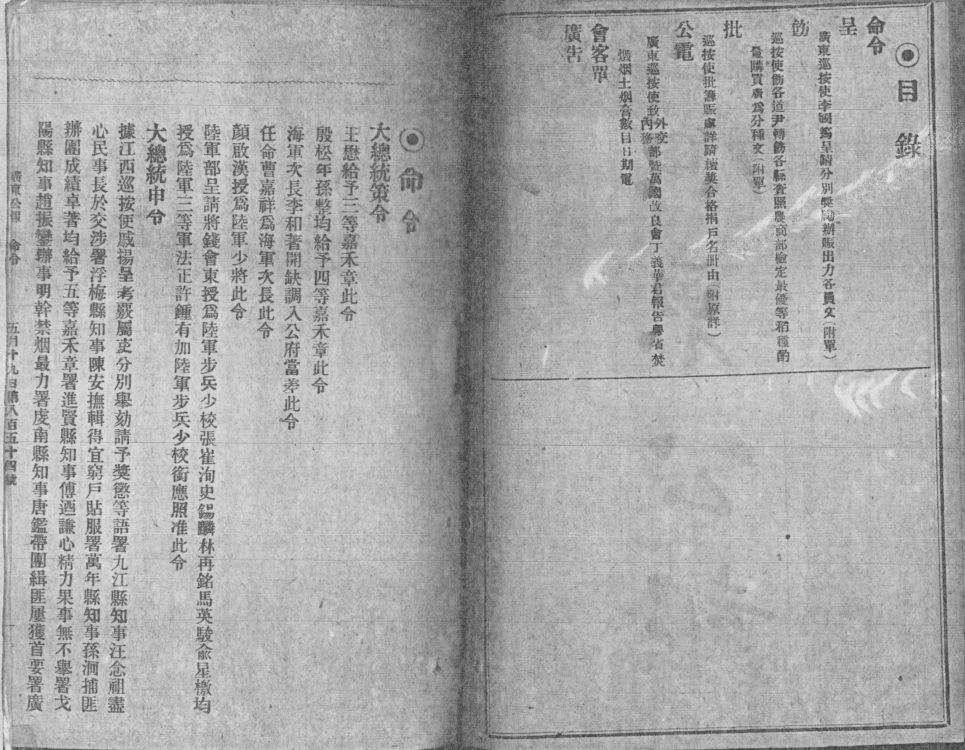 ◉目錄
命令
呈
廣東巡按使李國筠呈請分別獎勵辦賑出力各員文(附單)
飭
巡按使飭各道尹轉飭各縣查照農商部檢定最優等稻種酌
量購買廣爲分種文(附單)
批
巡按使批籌賑處詳請核獎合格捐戶名冊由(附原詳)
公電
廣東巡按使致外交內務部暨萬國改良會丁義華君報告粵省焚
燬烟土烟膏數目日期電
會客單
廣告
◉命令
大總統策令
王懋給予三等嘉禾章此令
殷松年孫整均給予四等嘉禾章此令
海軍次長李和著開缺調入公府當差此令
任命曹嘉祥爲海軍次長此令
顏啟漢授爲陸軍少將此令
陸軍部呈請將錢會東授爲陸軍步兵少校張崔洵史錫麟林再銘馬英駿俞星檄均
授爲陸軍三等軍法正許鍾有加陸軍步兵少校銜應照准此令
大總統申令
據江西巡按使戚揚呈考覈屬吏分別舉劾請予獎懲等語署九江縣知事汪念祖盡
心民事長於交涉署浮梅縣知事陳安撫輯得宜窮戶貼服署萬年縣知事孫泂捕匪
辦團成績卓著均給予五等嘉禾章署進賢縣知事傅迺謙心精力果事無不舉署戈
陽縣知事趙振鑾辦事明幹禁烟最力署虔南縣知事唐鑑帶團緝匪屢獲首要署廣
廣東公報 命令 五月十九日第八百五十四號